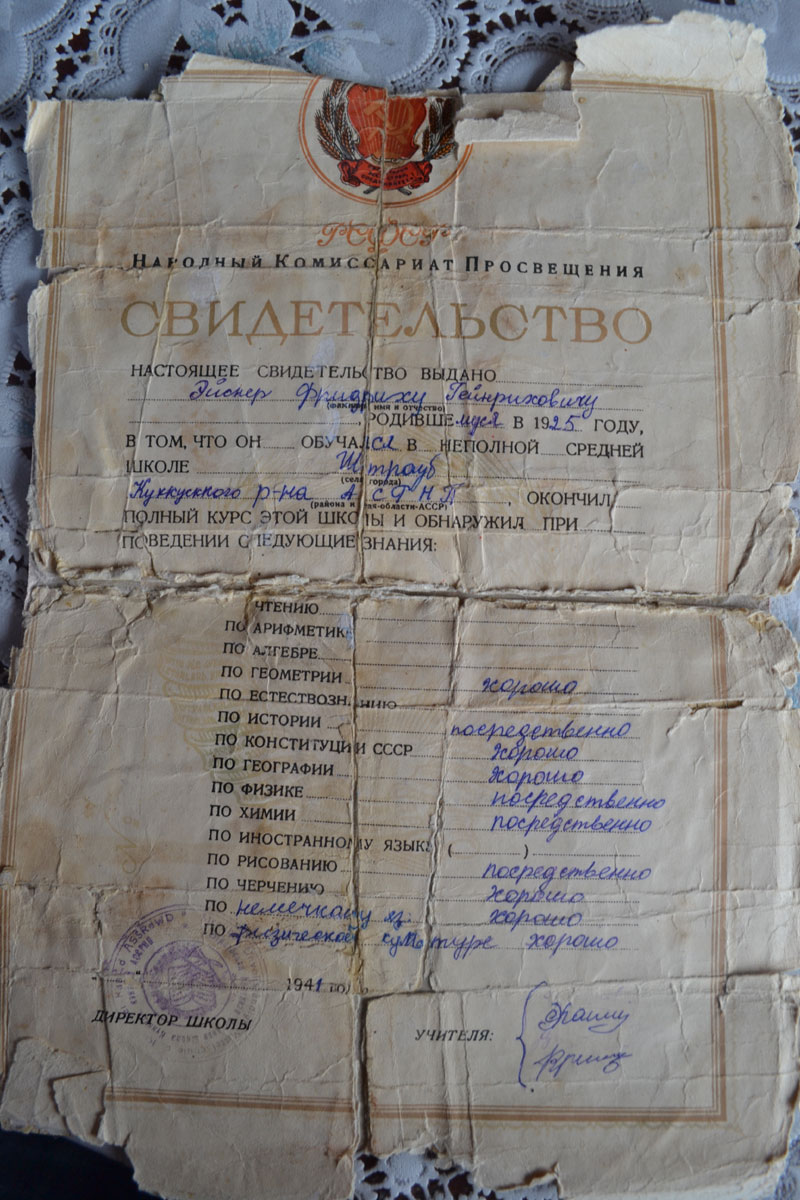 РСФСР
НАРОДНЫЙ КОМИССАРИАТ ПРОСВЕЩЕНИЯ
СВИДЕТЕЛЬСТВО
НАСТОЯЩЕЕ СВИДЕТЕЛЬСТВО ВЫДАНО
Эйснер Фридриху Гейнриховичу
(фамилия имя и отчество)
, РОДИВШЕМУСЯ В 1925 ГОДУ,
В ТОМ, ЧТО ОН ОБУЧАЛСЯ В НЕПОЛНОЙ СРЕДНЕЙ
ШКОЛЕ Штрауб
(села города)
Куккусского р-на АССРНП, ОКОНЧИЛ
(района края-области-АССР)
ПОЛНЫЙ КУРС ЭТОЙ ШКОЛЫ И ОБНАРУЖИЛ ПРИ
ПОВЕДЕНИИ СЛЕДУЮЩИЕ ЗНАНИЯ:
ЧТЕНИЮ
ПО АРИФМЕТИКЕ
ПО АЛГЕБРЕ
ПО ГЕОМЕТРИИ хорошо
ПО ЕСТЕСТВОЗНАНИЮ
ПО ИСТОРИИ посредственно
ПО КОНСТИТУЦИИ СССР хорошо
ПО ГЕОГРАФИИ хорошо
ПО ФИЗИКЕ посредственно
ПО ХИМИИ посредственно
ПО ИНОСТРАННОМУ ЯЗЫКУ ( )
ПО РИСОВАНИЮ посредственно
ПО ЧЕРЧЕНИЮ хорошо
ПО немечкому яз. хорошо
ПО физической культуре хорошо
1941 год
ДИРЕКТОР ШКОЛЫ
УЧИТЕЛЯ: